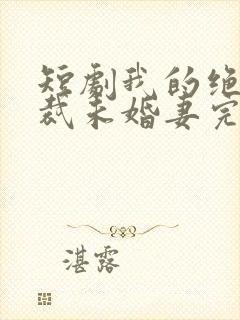 短剧我的绝
裁未婚妻完
湛露